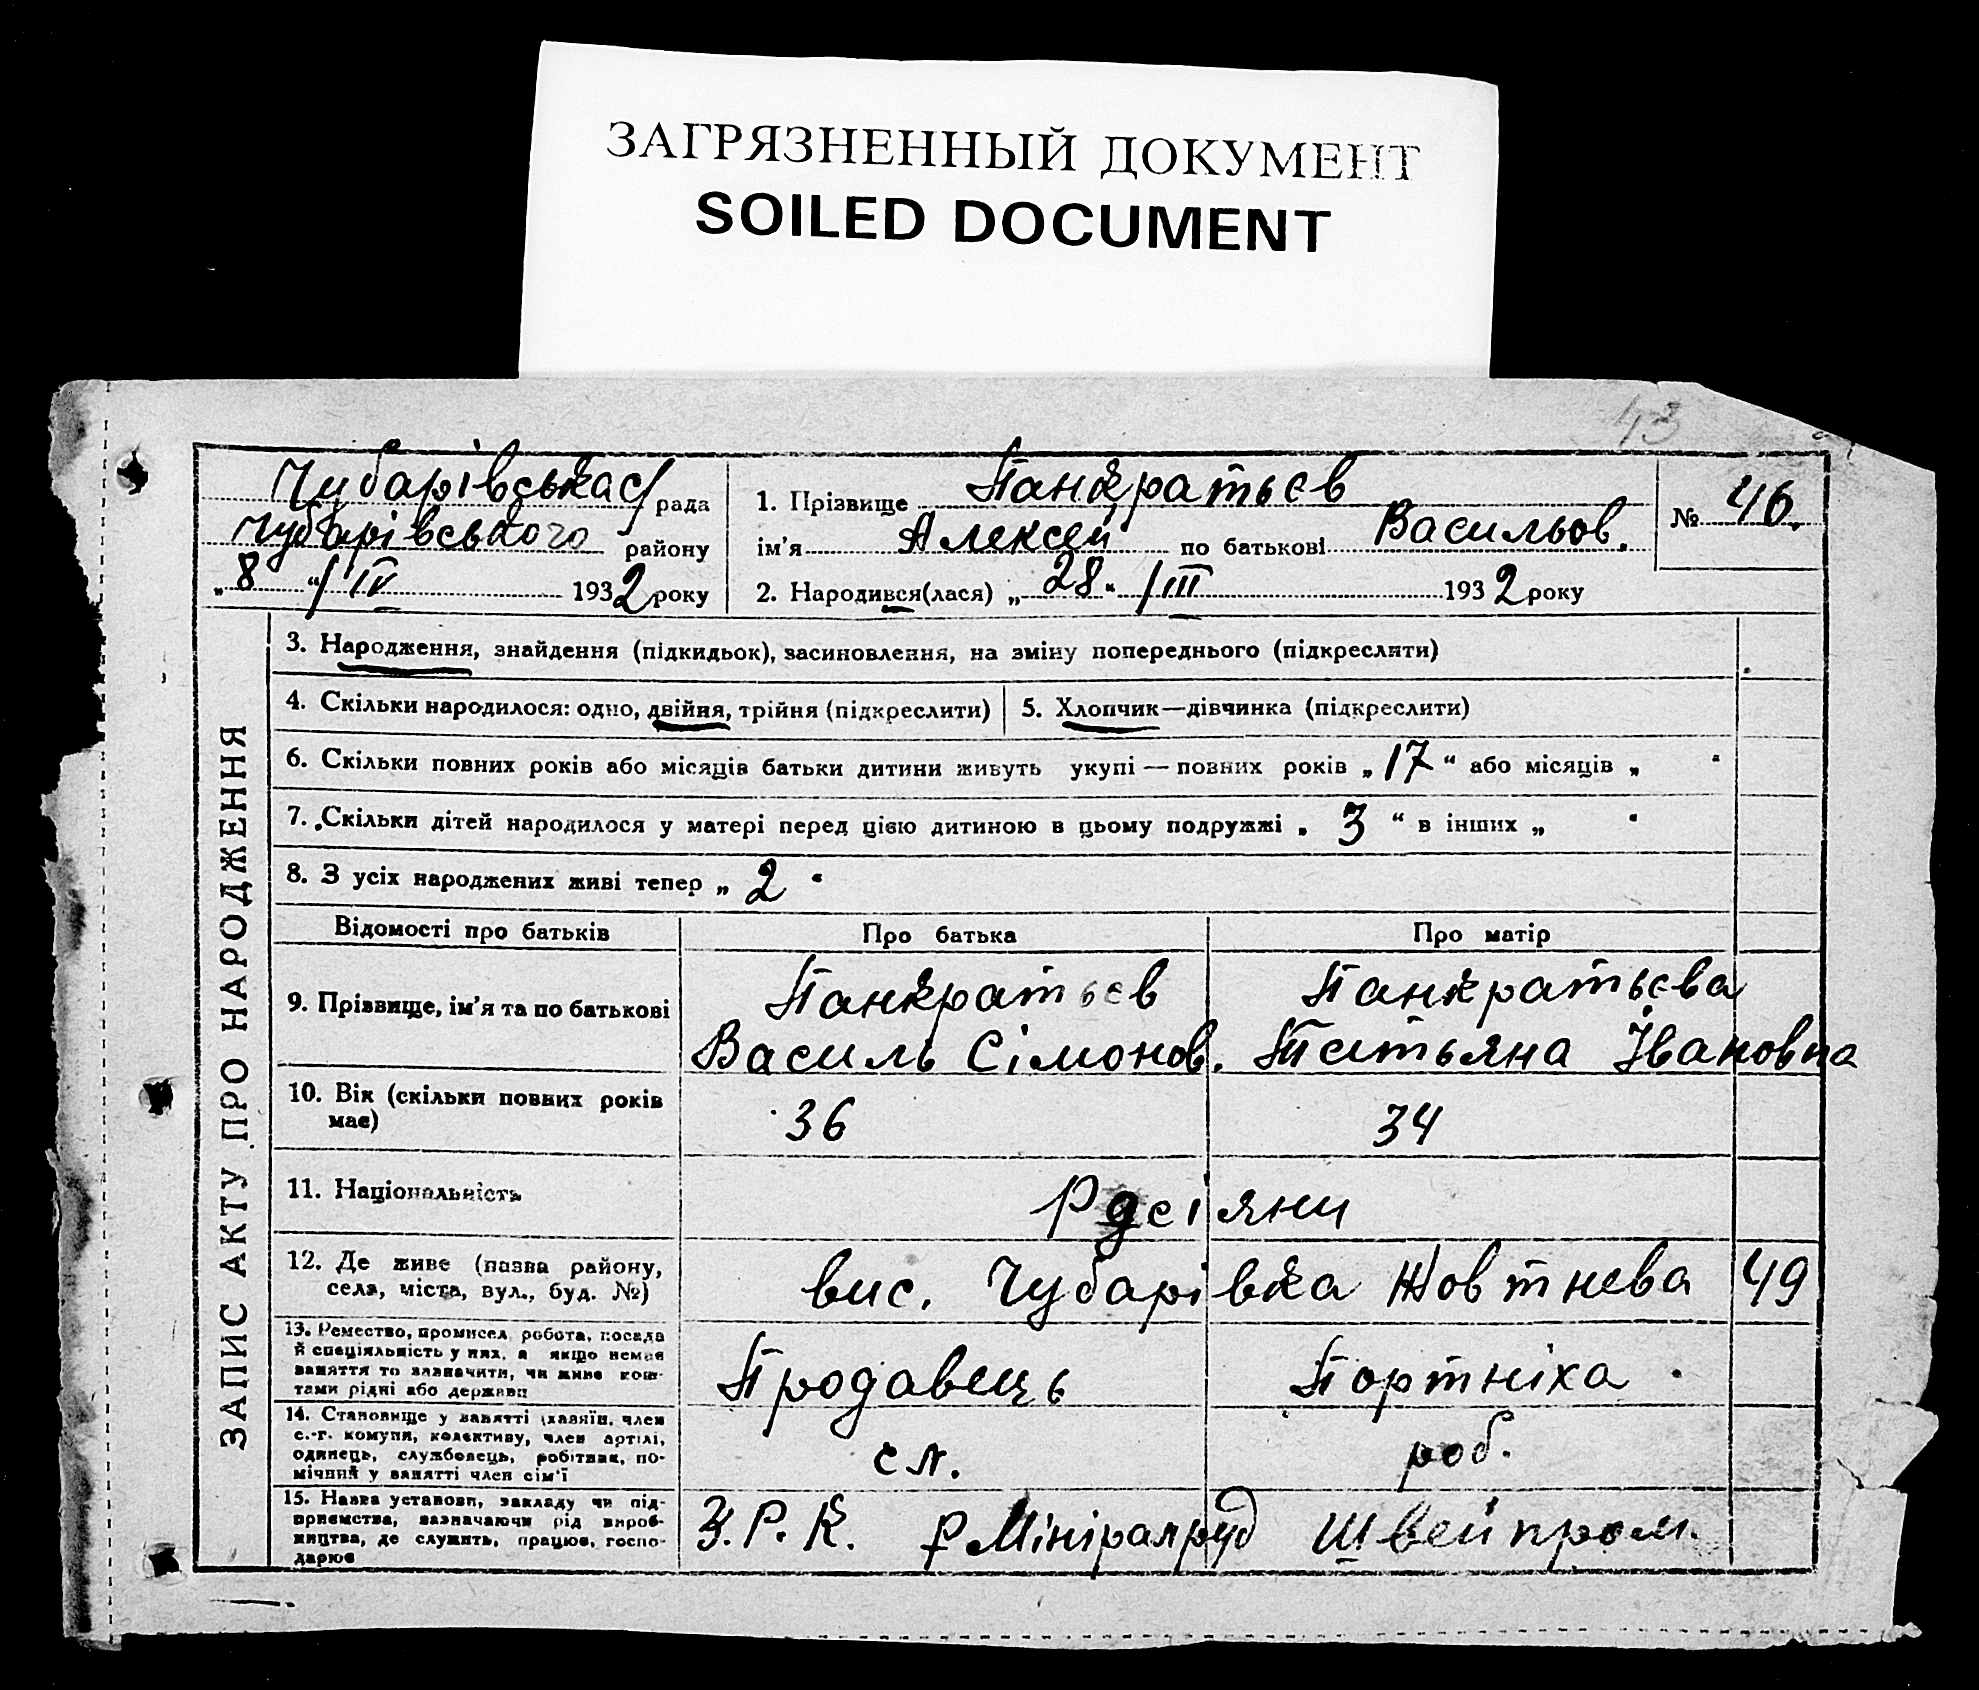 ЗАГРЯЗНЕННЫЙ ДОКУМЕНТ
SOILED DOCUMENT
43
Чубарівська с/рада
Чубарівського району
„8“/IV 1932 року
1. Прізвище Панкратьєв
ім'я Алексей по батькові Васильов.
№ 46.
2. Народився(лася) „28“/III 1932 року
ЗАПИС АКТУ ПРО НАРОДЖЕННЯ
3. Народження, знайдення (підкидьок), засиновлення, на зміну попереднього (підкреслити)
4. Скільки народилося: одно, двійня, трійня (підкреслити)
5. Хлопчик—дівчинка (підкреслити)
6. Скільки повних років або місяців батьки дитини живуть укупі — повних років „17“ або місяців „ “
7. Скільки дітей народилося у матері перед цією дитиною в цьому подружжі „3“ в інших „ “
8. З усіх народжених живі тепер „2“
Відомості про батьків Про батька Про матір
9. Прізвище, ім'я та по батькові
Панкратьєв
Василь Сімонов.
Панкратьєва
Татьяна Івановна
10. Вік (скільки повних років
має)
36
34
11. Національність
Росіяни
12. Де живе (назва району,
села, міста, вул., буд. №)
вис. Чубарівка Жовтнева 49
13. Ремество, промисел, робота, посада
й спеціяльність у них, а якщо немає
заняття то зазначити, чи живе кош-
тами рідні або держави
Продавець
Портніха
14. Становище у занятті (хазяїн, член
с.-г. комуни, колективу, член артілі,
одинець, службовець, робітник, по-
мічний у занятті член сім'ї
сл.
роб.
15. Назва установи, закладу чи під-
приємства, зазначаючи рід вироб-
ництва, де служить, працює, госпо-
дарює
З.Р.К. р Мініралруд
Швейпром.